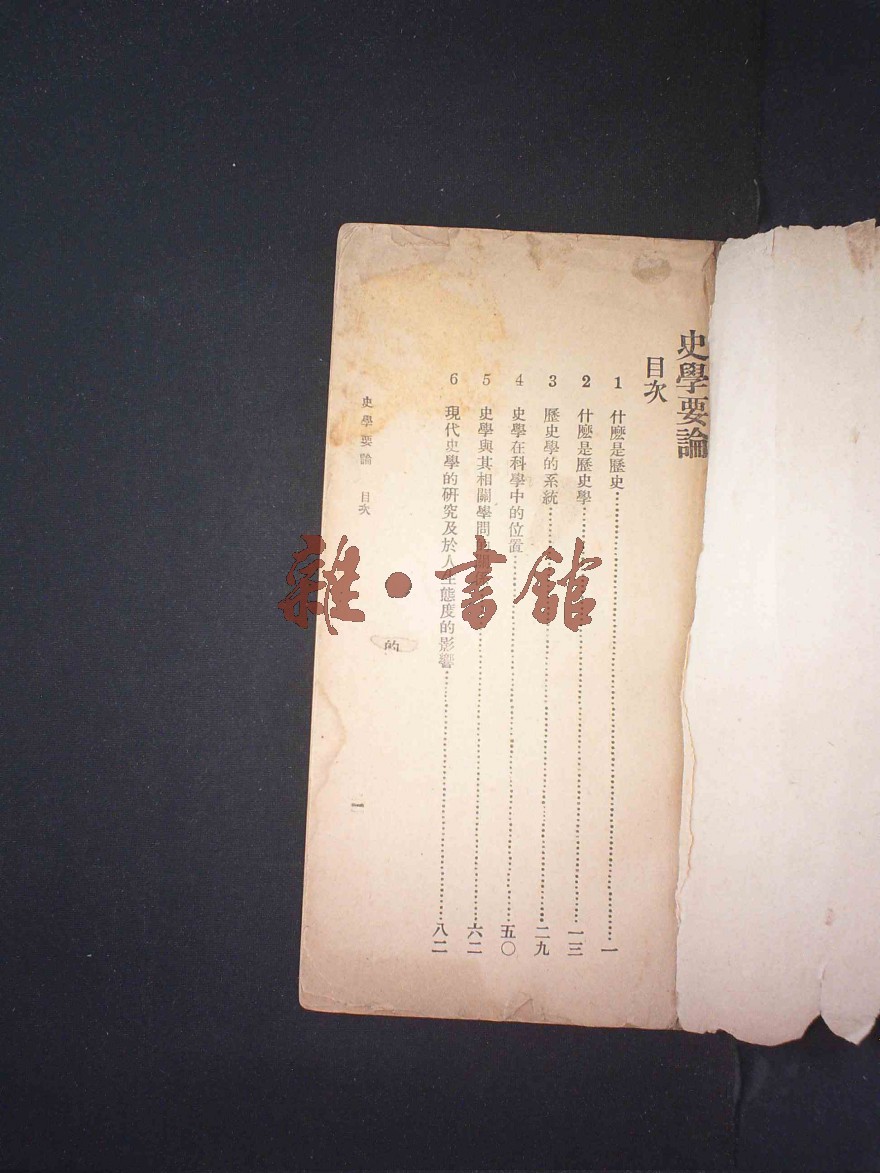 史學要論
目次
1 什麽是歷史……一
2 什麽是歷史學……一三
3 歷史學的系統……二九
4 史學在科學中的位置……五〇
5 史學與其相關學問……六二
6 現代史學的研究及於人生態度的影響……八二
的
史學要論 目次
一
雜·書館